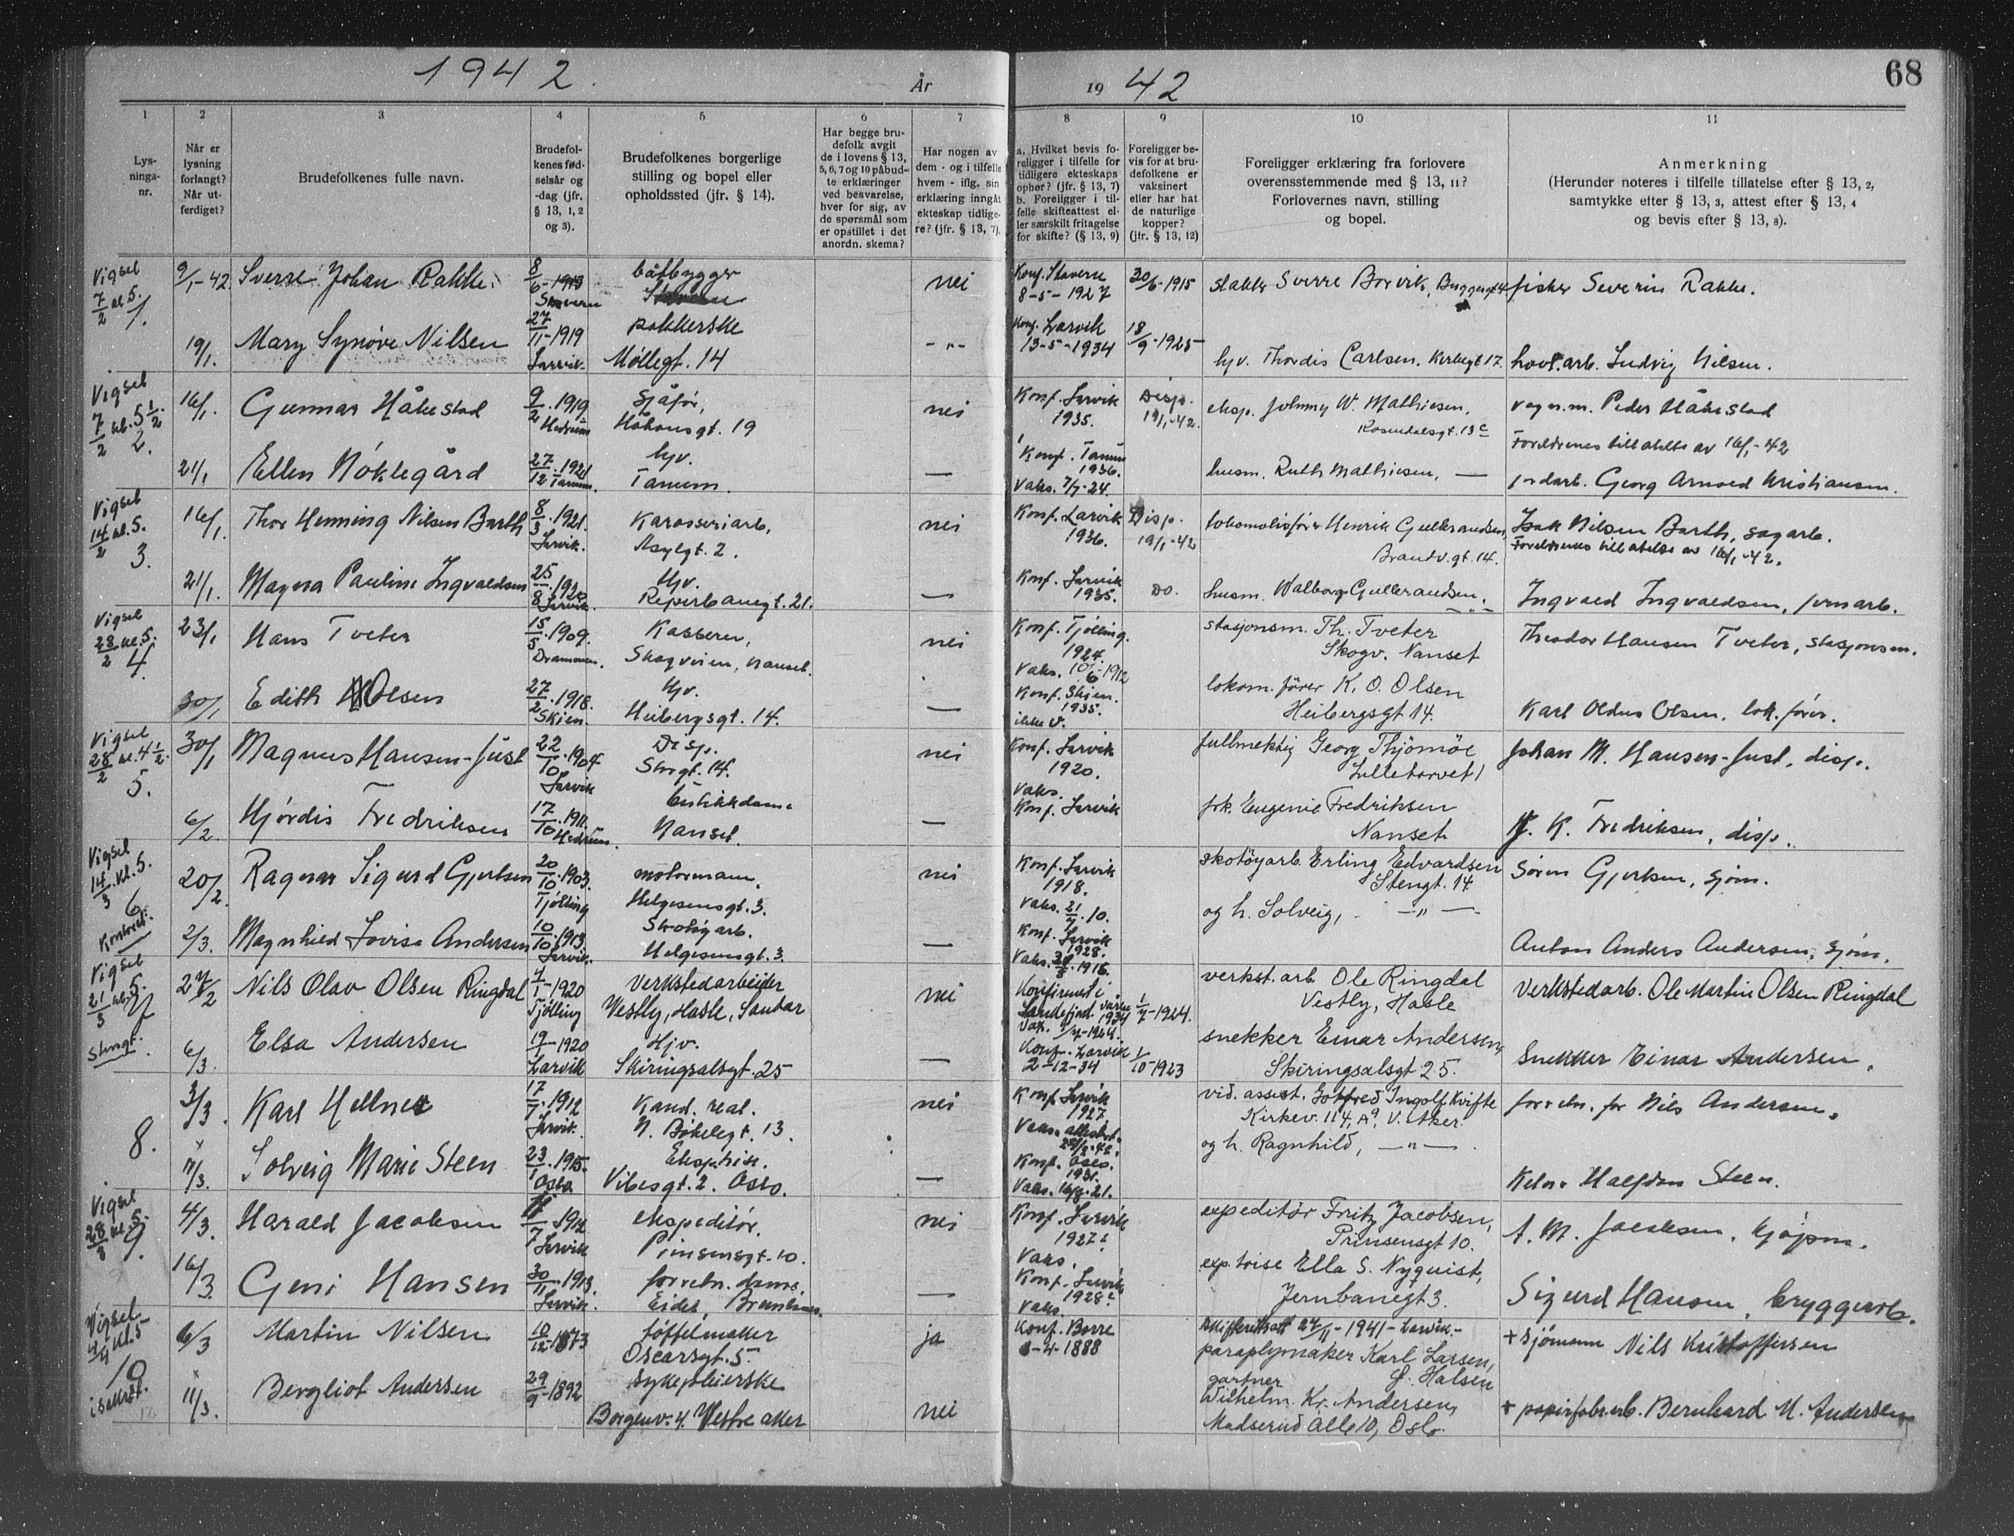 1942.
År
19 42
68
1
2
3
4
5
6
7
8
9
10
11
Lys-
nings-
nr.
Når er
lysning
forlangt?
Når ut-
ferdiget?
Brudefolkenes fulle navn.
Brudefol-
kenes fød-
selsår og
-dag (jfr.
§ 13, 1, 2
og 3).
Brudefolkenes borgerlige
stilling og bopel eller
opholdssted (jfr. § 14).
Har begge bru-
defolk avgit
de i lovens § 13,
5, 6, 7 og 10 påbud-
te erklæringer
ved besvarelse,
hver for sig, av
de spørsmål som
er opstillet i det
anordn. skema?
Har nogen av
dem - og i tilfelle
hvem - iflg. sin
erklæring inngått
ekteskap tidlige-
re? (jfr. § 13, 7).
a. Hvilket bevis fo-
religger i tilfelle for
tidligere ekteskaps
ophør? (jfr. § 13, 7)
b. Foreligger i til-
felle skifteattest el-
ler særskilt fritagelse
for skifte? (§ 13, 9)
Foreligger be-
vis for at bru-
defolkene er
vaksinert
eller har hat
de naturlige
kopper?
(jfr. § 13, 12)
Foreligger erklæring fra forlovere
overensstemmende med § 13, 11?
Forlovernes navn, stilling
og bopel.
Anmerkning
(Herunder noteres i tilfelle tillatelse efter § 13, 2,
samtykke efter § 13, 3, attest efter § 13, 4
og bevis efter § 13, 8).
Vigsel
7/2 kl. 5.
1.
9/1-42
Sverre Johan Rakke
8/6-1913
Stavern
båtbygger
nei
Konf. Stavern
8-5-1927
30/6-1915
Sverre Borvik, Byggegt 4
fisker Severin Rakke.
19/1.
Mary Synøve Nilsen
27/11-1919
Larvik
pakkerske
Møllegt. 14
-"-
Konf. Larvik
13-5-1934
18/9-1925
hjv. Thordis Carlsen. Kirkegt 17.
hovl.arb. Ludvig Nilsen.
Vigsel
7/2 kl. 5 1/2.
2.
16/1.
Gunnar Håkestad
9/2.1919
Hedrum
Sjåfør,
Håkonsgt. 19
nei
Konf. Larvik
1935.
Disp.
19/1-42.
eksp. Johnny W. Mathisen,
Rosendalsgt. 13 c
vogn.m. Peder Håkestad
Foreldrenes tillatelse av 16/1-42
21/1
Ellen Nøklegård
27/12.1921
Tanum.
hjv.
Tanum.
—
Konf. Tanum
1936.
Vaks. 7/7-24.
husm. Ruth Mathisen, —
jordarb. Georg Arnold Kristiansen.
Vigsel
14/2 kl. 5.
3.
16/1.
Thor Henning Nilsen Barth
8/3.1921.
Larvik.
Karosseriarb,
Asylgt. 2.
nei
Konf. Larvik
1936.
Disp.
19/1-42
lokomotivfører Henrik Gulbrandsen,
Brandv.gt. 14.
Isak Nilsen Barth, sagarb.
Foreldrenes tillatelse av 16/1-42.
21/1.
Magna Pauline Ingvaldsen
25/8.1920
Larvik.
Hjv.
Reperbanegt. 21.
—
Konf. Larvik
1935.
Do.
husm. Valborg Gulbrandsen,
Ingvald Ingvaldsen, jernarb.
Vigsel
28/2 kl. 5.
4.
23/1
Hans Tveter
15/5.1909.
Drammen.
Kasserer,
Skogveien, Nanset.
nei
Konf. Tjølling.
1924.
Vaks. 10/6-1912
stasjonsm. Th. Tveter
Skogv. Nanset
Theodor Hansen Tveter, stasjonsm.
30/1
Edith Olsen
27/2.1918.
Skien.
Hjv.
Heibergsgt. 14.
—
Konf. Skien.
1935.
ikke v.
lokom. fører K. O. Olsen
Heibergsgt 14.
Karl Oldus Olsen. lok. fører.
Vigsel
28/2 kl. 4 1/2.
5.
30/1
Magnus Hansen-Just
22/10.1904.
Larvik
Disp.
Storgt. 14.
nei
Konf. Larvik
1920.
Vaks.
fullmektig Georg Thjømøe
Lilletorvet 1
Johan M. Hansen-Just, disp.
6/2.
Hjørdis Fredriksen
17/10.1911.
Hedrum.
butikkdame
Nanset.
—
Konf. Larvik
frk. Eugenie Fredriksen
Nanset
K. Fredriksen, disp.
Vigsel
14/3 kl. 5.
6.
Kontoret.
20/2.
Ragnar Sigurd Gjertsen
20/10.1903.
Tjølling
motormann.
Helgesensgt. 3.
nei
Konf. Larvik
1918.
Vaks. 21/7.10.
skotøyarb. Erling Edvardsen
Stengt. 14
Søren Gjertsen, sjøm.
2/3.
Magnhild Lovise Andersen
10/10.1913.
Larvik.
Skotøyarb.
Helgesensgt. 3.
—
Konf. Larvik
1928.
og h. Solveig, —"—
Anton Anders Andersen, sjøm.
Vigsel
21/3 kl. 5.
7
Stengt.
27/2
Nils Olav Olsen Ringdal
4/1-1920
Tjølling
verkstedarbeider
Vestly, Hasle, Sandar
nei
Konfirmert i
1934
1/7-1924.
verkst. arb Ole Ringdal
Vestly, Hasle
Verkstedarb. Ole Martin Olsen Ringdal
6/3.
Elsa Andersen
Larvik
Hjv.
Skiringsalsgt. 25
—
Konf. Larvik
2-12-34
1/10-1923
snekker Einar Andersen,
Skiringsalsgt 25.
Snekker Einar Andersen.
8.
3/3.
Karl Hellner
17/7.1912
Larvik.
Kand. real.
N. Bøkelegt. 13.
nei
Konf. Larvik
1927.
Vaks. attest
vid. assist. Gotfred Ingolf Kvifte
Kirkev. 114, A, V. Aker
forretn. før Nils Andersen.
7/3.
Solveig Marie Steen
23/1.1915.
Oslo
Eksp.trise.
Vibesgt. 2. Oslo.
—
Konf. Oslo.
1931.
og h. Ragnhild, —"—
Keln. Halfdan Steen.
Vigsel
28/3 kl. 5.
9.
4/3.
Harald Jacobsen
Larvik
ekspeditør.
Prinsensgt. 10.
nei
Konf. Larvik
1927.
Vaks.
expeditør Fritz Jacobsen,
Prinsensgt 10.
A. M. Jacobsen. kjøpm.
16/3.
Geni Hansen
30/11.1913.
Larvik.
forretn. dame.
Eidet, Brunlanes.
—
Konf. Larvik
1928.
Vaks.
exp.trise Ella S. Nyquist,
Jernbanegt 3.
Sigurd Hansen. bryggeriarb.
Vigsel
4/4 kl. 5
10
6/3
Martin Nilsen
10/12-1873
tøffelmaker
Oscarsgt. 5.
ja
Konf. Borre
-4-1888
Skifteattest 24/11-1941-Larvik.-
paraplymaker Karl Larsen,
+ sjømann Nils Kristoffersen
11/3.
Bergliot Andersen
29/9-1892
sykepleierske
Borgenv. 4. Vestre Aker
nei
gartner
Wilhelm Kr. Andersen,
Madserud Alle 10, Oslo.
+ papirfabr.arb. Bernhard M. Andersen